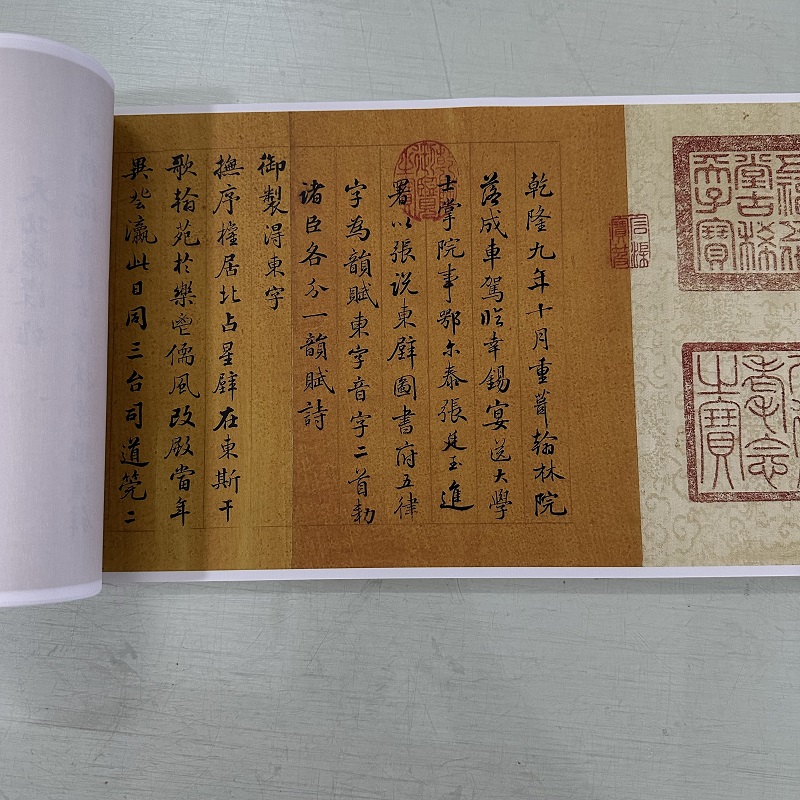 堂古稀
天子寶
耄念
之寶
乾隆九年十月重葺翰林院
落成車駕臨幸錫宴送大學
士掌院事鄂尔泰張廷玉進
署以張說東壁圖書府五律
字為韻賦東字音字二首勅
諸臣各分一韻賦詩
御製得東字
撫序權居北占星壁在東斯干
歌翰苑於樂鬯儒風改殿當年
異登瀛此日同三台司道筦二